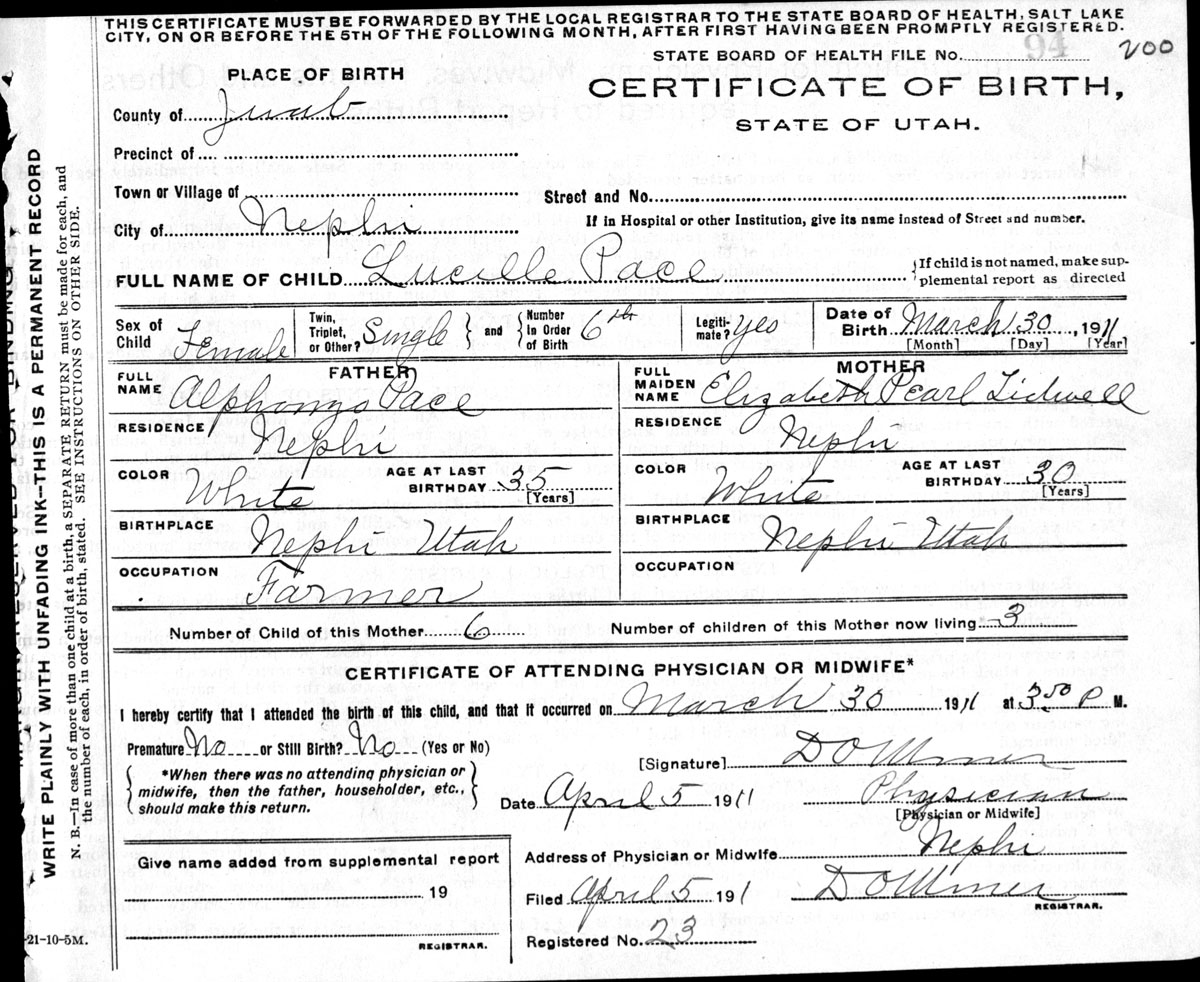 THIS CERTIFICATE MUST BE FORWARDED BY THE LOCAL REGISTRAR TO THE STATE BOARD OF HEALTH, SALT LAKE
CITY, ON OR BEFORE THE 5TH OF THE FOLLOWING MONTH, AFTER FIRST HAVING BEEN PROMPTLY REGISTERED.
STATE BOARD OF HEALTH FILE No. 94 200
PLACE OF BIRTH
CERTIFICATE OF BIRTH,
STATE OF UTAH.
County of Juab
Precinct of
Town or Village of
Street and No.
City of Nephi
If in Hospital or other Institution, give its name instead of Street and number.
FULL NAME OF CHILD Lucille Pace {If child is not named, make sup-
plemental report as directed
Sex of Child Female
Twin, Triplet, or Other? Single } and { Number In Order of Birth 6th
Legiti-mate? yes
Date of Birth March 30, 1911
[Month] [Day] [Year]
FATHER
FULL NAME Alphonzo Pace
RESIDENCE Nephi
COLOR White AGE AT LAST BIRTHDAY 35 [Years]
BIRTHPLACE Nephi Utah
OCCUPATION Farmer
MOTHER
FULL MAIDEN NAME Elizabeth Pearl Tidwell
RESIDENCE Nephi
COLOR White AGE AT LAST BIRTHDAY 30 [Years]
BIRTHPLACE Nephi Utah
OCCUPATION
Number of Child of this Mother 6 Number of children of this Mother now living 3
CERTIFICATE OF ATTENDING PHYSICIAN OR MIDWIFE*
I hereby certify that I attended the birth of this child, and that it occurred on March 30 1911 at 3:50 P M.
Premature No or Still Birth? No (Yes or No)
{ *When there was no attending physician or
midwife, then the father, householder, etc.,
should make this return. }
[Signature] D O Miner
Date April 5 1911 Physician
[Physician or Midwife]
Give name added from supplemental report
19
REGISTRAR.
Address of Physician or Midwife Nephi
Filed April 5 191 D O Miner
REGISTRAR.
Registered No. 23
WRITE PLAINLY WITH UNFADING INK--THIS IS A PERMANENT RECORD
N. B.—In case of more than one child at a birth, a SEPARATE RETURN must be made for each, and
the number of each, in order of birth, stated. SEE INSTRUCTIONS ON OTHER SIDE.
21-10-5M.